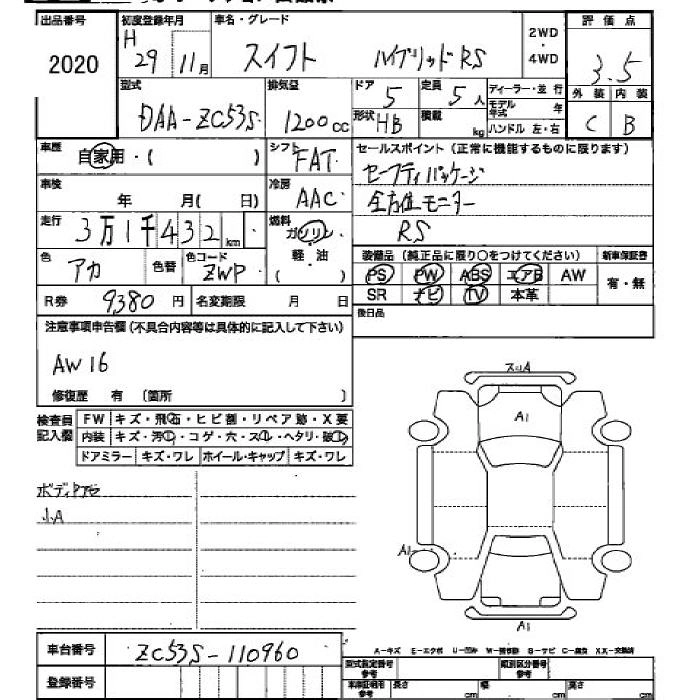 出品番号 初度登録年月 車名・グレード 2WD・4WD 評価点
2020 H 29 11月 スイフト ハイブリッドRS 3.5
外装 内装
C B
型式 排気量 ドア 定員 ディーラー・並行
DAA-ZC53S 1200cc 5 5人 モデル年式 年
形状 HB 積載 kg ハンドル 左・右
車歴 自家用・( ) シフト FAT セールスポイント(正常に機能するものに限ります)
セーフティパッケージ
車検 年 月( 日) 冷房 AAC 全方位モニター
走行 3万1千432km 燃料 ガソリン・軽・油 ( ) RS
色 アカ 色替 色コード ZWP 装備品(純正品に限り○をつけてください) 新車保証書
PS PW ABS エアB AW 有・無
R券 9380円 名変期限 月 日 SR ナビ TV 本革
注意事項申告欄(不具合内容等は具体的に記入して下さい) 後日品
AW16
修復歴 有 〔箇所 〕
検査員記入欄 FW キズ・飛石・ヒビ割・リペア跡・X要
内装 キズ・汚レ・コゲ・穴・スレ・ヘタリ・破レ
ドアミラー キズ・ワレ ホイール・キャップ キズ・ワレ
スリA
A1
ボディ
小A
A1
A1
車台番号 ZC53S-110960
A-キズ E-エクボ U-凹み W-補修跡 S-サビ C-腐食 XX-交換済
型式指定番号 参考 類別区分番号 参考
登録番号 車庫証明用 参考 長さ cm 幅 cm 高さ cm